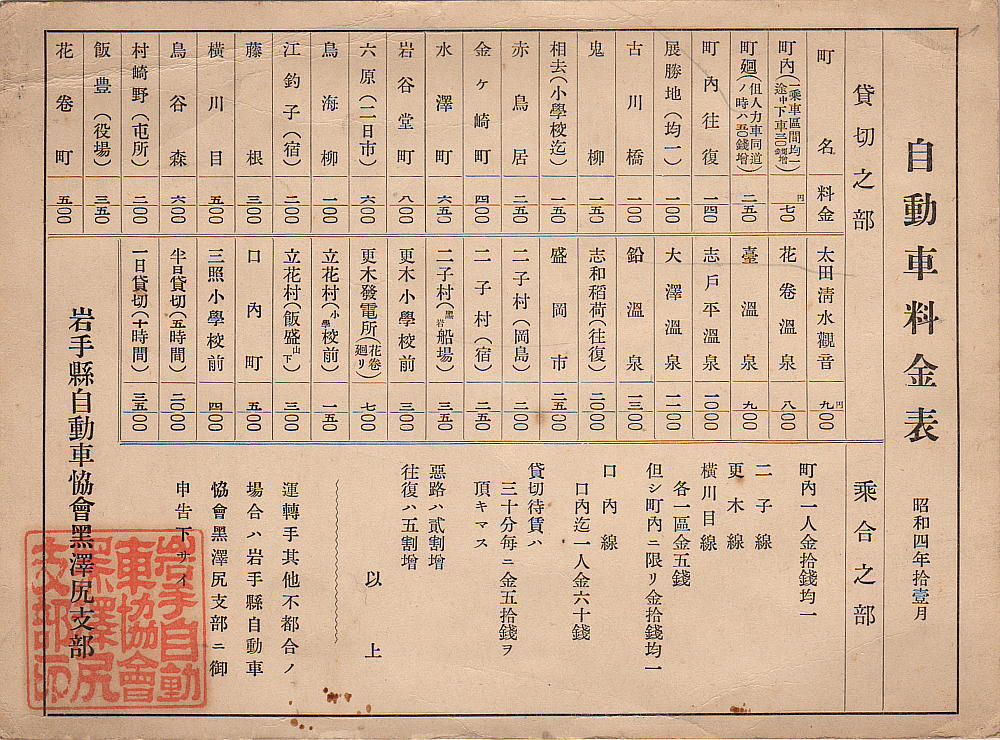 自動車料金表
昭和四年拾壹月
貸切之部
町名 料金
町内(一乘車區間均一 途中下車三〇錢增) 円七〇
町廻(但人力車同道ノ時ハ五〇錢增) 二五〇
町内往復 一四〇
展勝地(均一) 一〇〇
古川橋 一〇〇
鬼柳 一五〇
相去(小學校迄) 一五〇
赤鳥居 二五〇
金ヶ崎町 四〇〇
水澤町 六五〇
岩谷堂町 八〇〇
六原(二日市) 六〇〇
鳥海柳 一〇〇
江釣子(宿) 二〇〇
藤根 三〇〇
横川目 五〇〇
鳥谷森 六〇〇
村崎野(屯所) 二〇〇
飯豊(役場) 三五〇
花卷町 五〇〇
太田清水觀音 円九〇〇
花卷溫泉 八〇〇
臺溫泉 九〇〇
志戸平溫泉 一〇〇〇
大澤溫泉 一一〇〇
鉛溫泉 一三〇〇
志和稻荷(往復) 二〇〇〇
盛岡市 二五〇〇
二子村(岡島) 二〇〇
二子村(宿) 二五〇
二子村(黒岩船場) 三五〇
更木小學校前 三〇〇
更木發電所(花卷廻リ) 七〇〇
立花村(小學校前) 一五〇
立花村(飯盛山下) 三〇〇
口内町 五〇〇
三照小學校前 四〇〇
半日貸切(五時間) 二〇〇〇
一日貸切(十時間) 三五〇〇
乘合之部
町内一人金拾錢均一
二子線
更木線
横川目線
各一區金五錢
但シ町内ニ限リ金拾錢均一
口内線
口内迄一人金六十錢
貸切待賃ハ
三十分每ニ金五拾錢ヲ
頂キマス
惡路ハ貳割增
往復ハ五割增
以上
運轉手其他不都合ノ
場合ハ岩手縣自動車
恊會黑澤尻支部ニ御
申告下サイ
岩手縣自動車恊會黑澤尻支部
岩手自動
車協會
黑澤尻
支部印